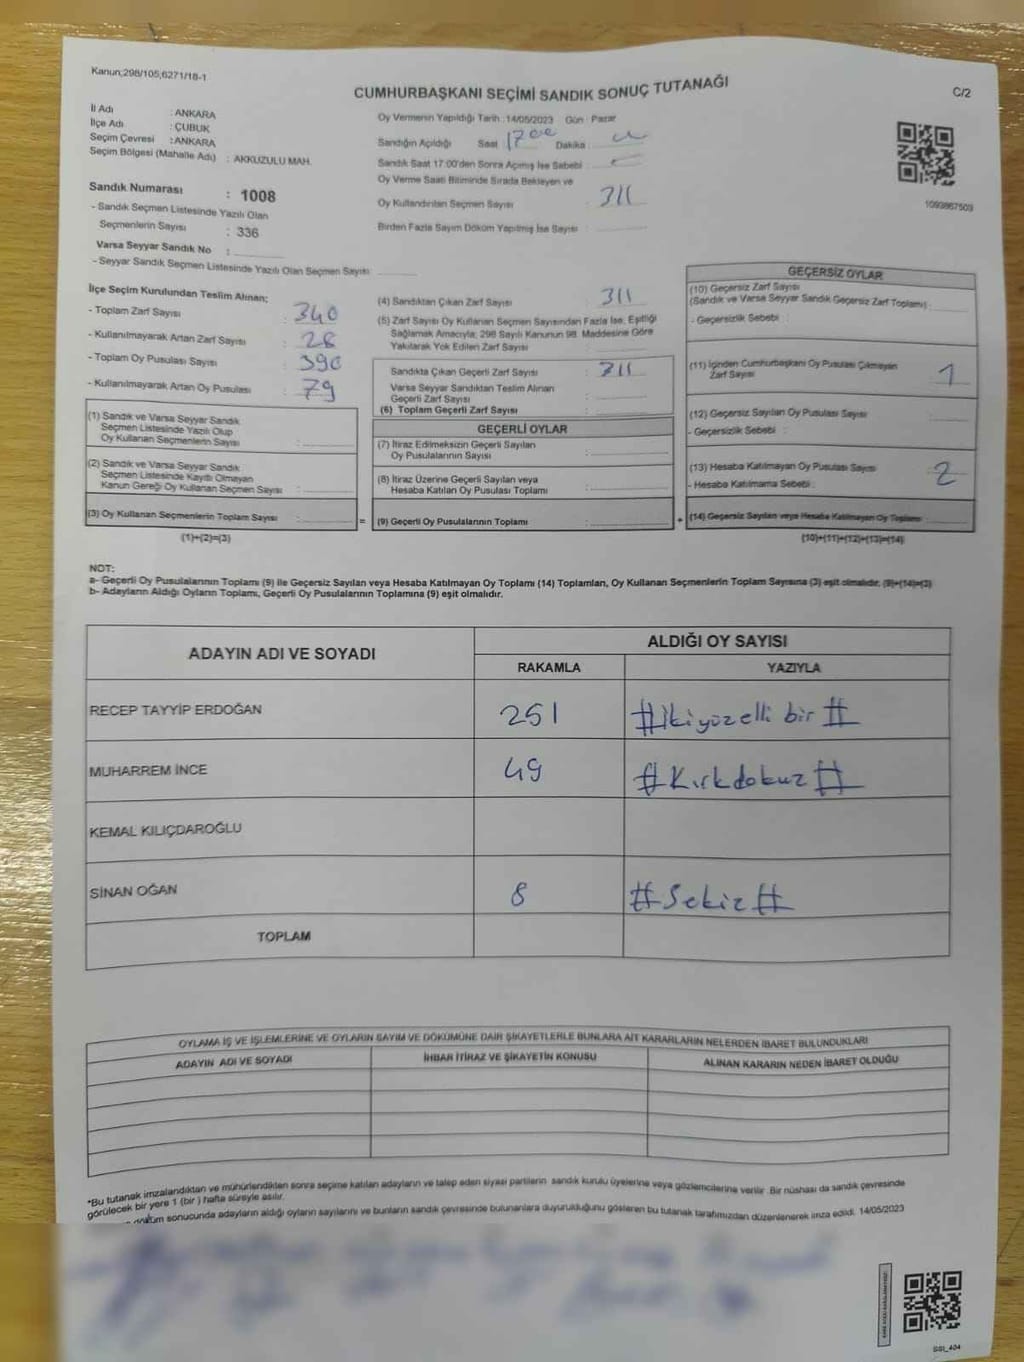 Kanun;298/105;6271/18-1
CUMHURBAŞKANI SEÇİMİ SANDIK SONUÇ TUTANAĞI
C/2
İl Adı : ANKARA
İlçe Adı : ÇUBUK
Seçim Çevresi : ANKARA
Seçim Bölgesi (Mahalle Adı) : AKKUZULU MAH.
Sandık Numarası : 1008
- Sandık Seçmen Listesinde Yazılı Olan
Seçmenlerin Sayısı : 336
Varsa Seyyar Sandık No :
- Seyyar Sandık Seçmen Listesinde Yazılı Olan Seçmen Sayısı :
Oy Vermenin Yapıldığı Tarih :14/05/2023 Gün : Pazar
Sandığın Açıldığı Saat 17 00 Dakika :
Sandık Saat 17:00'den Sonra Açımış İse Sebebi :
Oy Verme Saati Bitiminde Sırada Bekleyen ve
Oy Kullandırılan Seçmen Sayısı : 311
Birden Fazla Sayım Döküm Yapılmış İse Sayısı :
1093867509
İlçe Seçim Kurulundan Teslim Alınan;
- Toplam Zarf Sayısı : 340
- Kullanılmayarak Artan Zarf Sayısı : 28
- Toplam Oy Pusulası Sayısı : 390
- Kullanılmayarak Artan Oy Pusulası : 79
(1) Sandık ve Varsa Seyyar Sandık
Seçmen Listesinde Yazılı Olup
Oy Kullanan Seçmenlerin Sayısı :
(2) Sandık ve Varsa Seyyar Sandık
Seçmen Listesinde Kayıtlı Olmayan
Kanun Gereği Oy Kullanan Seçmen Sayısı :
(3) Oy Kullanan Seçmenlerin Toplam Sayısı :
(1)+(2)=(3)
(4) Sandıktan Çıkan Zarf Sayısı : 311
(5) Zarf Sayısı Oy Kullanan Seçmen Sayısından Fazla İse, Eşitliği
Sağlamak Amacıyla; 298 Sayılı Kanunun 98. Maddesine Göre
Yakılarak Yok Edilen Zarf Sayısı :
Sandıkta Çıkan Geçerli Zarf Sayısı : 311
Varsa Seyyar Sandıktan Teslim Alınan
Geçerli Zarf Sayısı :
(6) Toplam Geçerli Zarf Sayısı :
GEÇERLİ OYLAR
(7) İtiraz Edilmeksizin Geçerli Sayılan
Oy Pusulalarının Sayısı :
(8) İtiraz Üzerine Geçerli Sayılan veya
Hesaba Katılan Oy Pusulası Toplamı :
= (9) Geçerli Oy Pusulalarının Toplamı :
GEÇERSİZ OYLAR
(10) Geçersiz Zarf Sayısı
(Sandık ve Varsa Seyyar Sandık Geçersiz Zarf Toplamı) :
- Geçersizlik Sebebi :
(11) İçinden Cumhurbaşkanı Oy Pusulası Çıkmayan
Zarf Sayısı : 1
(12) Geçersiz Sayılan Oy Pusulası Sayısı :
- Geçersizlik Sebebi :
(13) Hesaba Katılmayan Oy Pusulası Sayısı : 2
- Hesaba Katılmama Sebebi :
+ (14) Geçersiz Sayılan veya Hesaba Katılmayan Oy Toplamı :
(10)+(11)+(12)+(13)=(14)
NOT:
a- Geçerli Oy Pusulalarının Toplamı (9) ile Geçersiz Sayılan veya Hesaba Katılmayan Oy Toplamı (14) Toplamları, Oy Kullanan Seçmenlerin Toplam Sayısına (3) eşit olmalıdır. (9)+(14)=(3)
b- Adayların Aldığı Oyların Toplamı, Geçerli Oy Pusulalarının Toplamına (9) eşit olmalıdır.
ADAYIN ADI VE SOYADI
ALDIĞI OY SAYISI
RAKAMLA
YAZIYLA
RECEP TAYYİP ERDOĞAN 251 #ikiyüzelli bir#
MUHARREM İNCE 49 #Kırkdokuz#
KEMAL KILIÇDAROĞLU
SİNAN OĞAN 8 #Sekiz#
TOPLAM
OYLAMA İŞ VE İŞLEMLERİNE VE OYLARIN SAYIM VE DÖKÜMÜNE DAİR ŞİKAYETLERLE BUNLARA AİT KARARLARIN NELERDEN İBARET BULUNDUKLARI
ADAYIN ADI VE SOYADI
İHBAR İTİRAZ VE ŞİKAYETİN KONUSU
ALINAN KARARIN NEDEN İBARET OLDUĞU
*Bu tutanak imzalandıktan ve mühürlendikten sonra seçime katılan adayların ve talep eden siyasi partilerin sandık kurulu üyelerine veya gözlemcilerine verilir. Bir nüshası da sandık çevresinde
görülecek bir yere 1 (bir) hafta süreyle asılır.
döküm sonucunda adayların aldığı oyların sayılarını ve bunların sandık çevresinde bulunanlara duyurulduğunu gösteren bu tutanak tarafımızdan düzenlenerek imza edildi. 14/05/2023
SSI_404